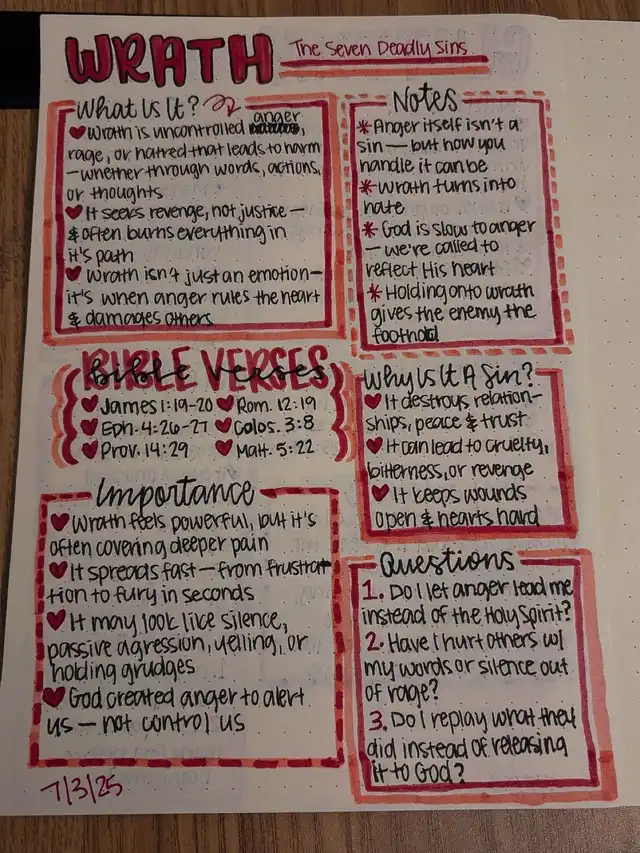 WRATH
The Seven Deadly Sins
What Is It?
anger
♥ Wrath is uncontrolled,
rage, or hatred that leads to harm
—whether through words, actions,
or thoughts
♥ It seeks revenge, not justice —
& often burns everything in
it's path
♥ Wrath isn't just an emotion—
it's when anger rules the heart
& damages others
Notes
* Anger itself isn't a
sin — but how you
handle it can be
* Wrath turns into
hate
* God is slow to anger
— we're called to
reflect His heart
* Holding onto wrath
gives the enemy the
foothold
BIBLE VERSES
bible verses
♥ James 1:19-20 ♥ Rom. 12:19
♥ Eph. 4:26-27 ♥ Colos. 3:8
♥ Prov. 14:29 ♥ Matt. 5:22
Why Is It A Sin?
♥ It destroys relation-
ships, peace & trust
♥ It can lead to cruelty,
bitterness, or revenge
♥ It keeps wounds
open & hearts hard
Importance
♥ Wrath feels powerful, but it's
often covering deeper pain
♥ It spreads fast — from frustrat
tion to fury in seconds
♥ It may look like silence,
passive agression, yelling, or
holding grudges
♥ God created anger to alert
us — not control us
Questions
1. Do I let anger lead me
instead of the Holy Spirit?
2. Have I hurt others w/
my words or silence out
of rage?
3. Do I replay what they
did instead of releasing
it to God?
7/3/25